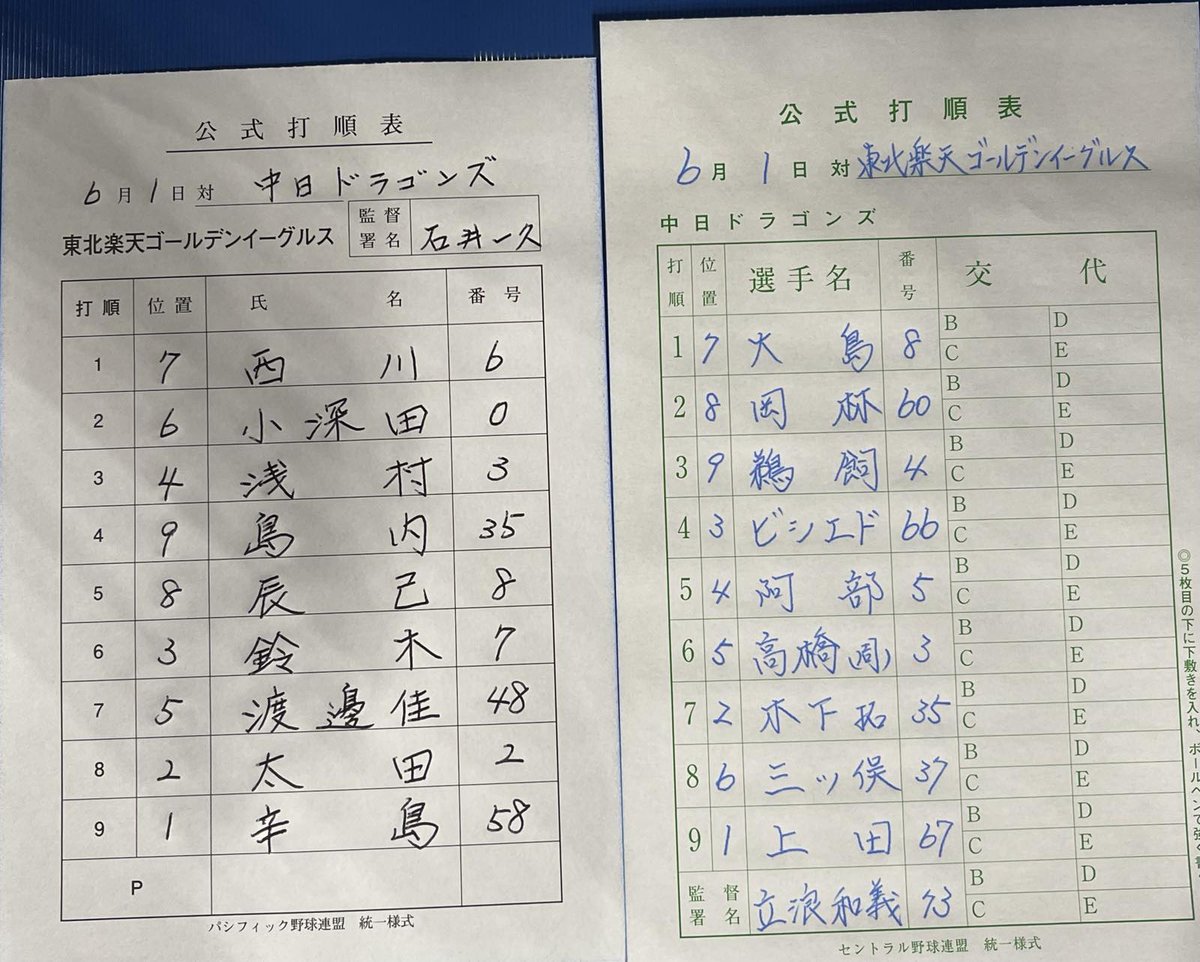 公式打順表
6月1日対 中日ドラゴンズ
東北楽天ゴールデンイーグルス 監督署名 石井一久
打順 位置 氏名 番号
1 7 西川 6
2 6 小深田 0
3 4 浅村 3
4 9 島内 35
5 8 辰己 8
6 3 鈴木 7
7 5 渡邊佳 48
8 2 太田 2
9 1 辛島 58
P
パシフィック野球連盟 統一様式
公式打順表
6月1日対 東北楽天ゴールデンイーグルス
中日ドラゴンズ
打順 位置 選手名 番号 交代
1 7 大島 8 B D
C E
2 8 岡林 60 B D
C E
3 9 鵜飼 4 B D
C E
4 3 ビシエド 66 B D
C E
5 4 阿部 5 B D
C E
6 5 高橋周 3 B D
C E
7 2 木下拓 35 B D
C E
8 6 三ッ俣 37 B D
C E
9 1 上田 67 B D
C E
監督署名 立浪和義 73 B D
C E
セントラル野球連盟 統一様式
◎5枚目の下に下敷きを入れ、ボールペンで強く書